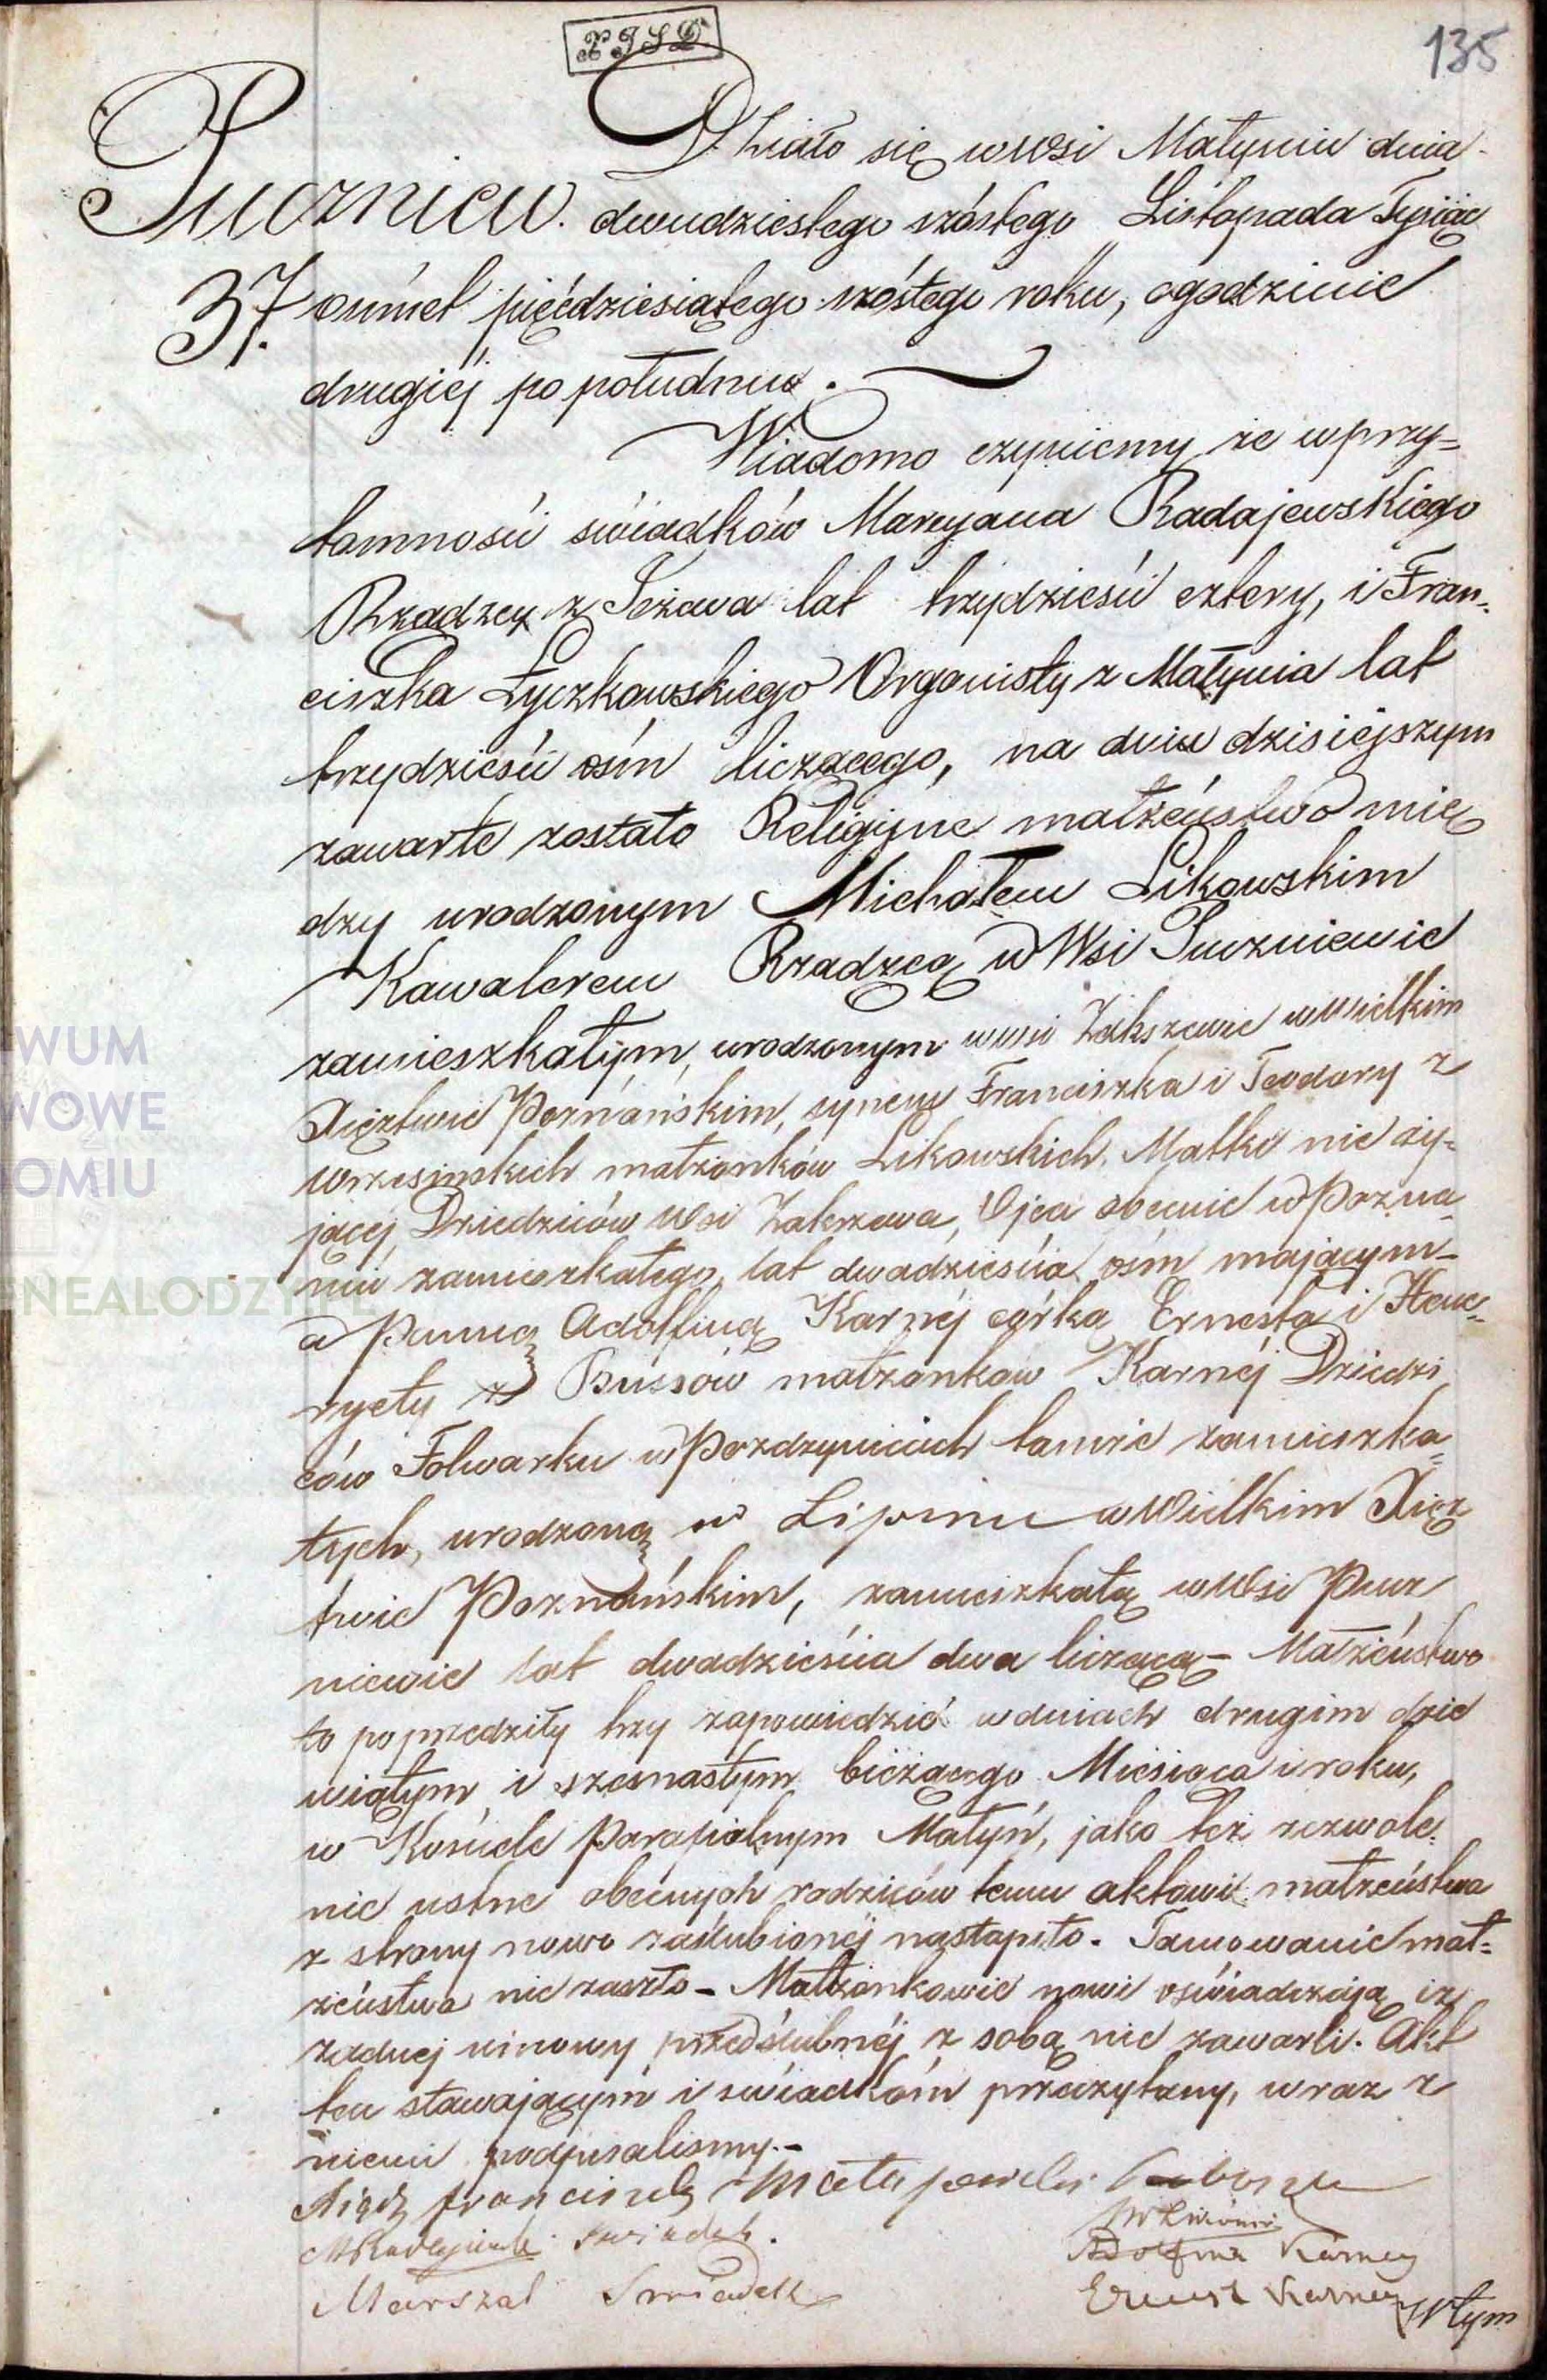 135
Działo się w Wsi Małyniu dnia
Puczniew. dwudziestego szóstego Listopada Tysiąc
37. osmset pięćdziesiątego szóstego roku, ogodzinie
drugiéj po południu.
Wiadomo czyniemy że w przy=
tomności świadków Maryana Radajewskiego
Rządzcy z Jeżewa lat trzydzieści cztery, i Fran=
ciszka Łyczkowskiego Organisty z Małynia lat
trzydzieści ośm liczącego, na dniu dzisiejszym
zawarte zostało Religijne małżeństwo mię
dzy urodzonym Michałem Likowskim
Kawalerem Rządzcą w Wsi Puczniewie
zamieszkałym, urodzonym w wsi Zakszewie w Wielkim
Xięztwie Poznańskim, synem Franciszka i Teodory z
Wrzesinskich małżonków Likowskich, Matki nie ży=
jącej Dziedziców Wsi Zakrzewa, Ojca obecnie w Pozna
niu zamieszkałego, lat dwadzieścia ośm mającym_
a Panną Adolfiną Karnéj córką Ernesta i Hen=
ryety z Bussów małżonków Karnéj Dziedzi
ców Folwarku w Pozdzynicach tamże zamieszka=
łych, urodzoną w Lipiniu w Wielkim Xięz
twie Poznańskim, zamieszkałą w Wsi Pucz
niewie lat dwadzieścia dwa liczącą – Małżeństwo
to poprzedziły trzy zapowiedzie w dniach drugim dzie
wiątym i szesnastym bieżącego Miesiąca i roku,
w Kościele Parafialnym Małyń, jako też zezwole=
nie ustne obecnych rodziców temu aktowi małżeństwa
z strony nowo zaślubionéj nastąpiło. Tamowanie mał=
żeństwa nie zaszło – Małżonkowie nowi oświadczają iż
żadnej umowy przedślubnéj z sobą nie zawarli. Akt
ten stawającym i świadkom przeczytany, wraz z
niemi podpisalismy.–
Xiądz Franciszek
świadek.
Adolfina Karney
Marszał Swiadek
Ernest Karney
W tym